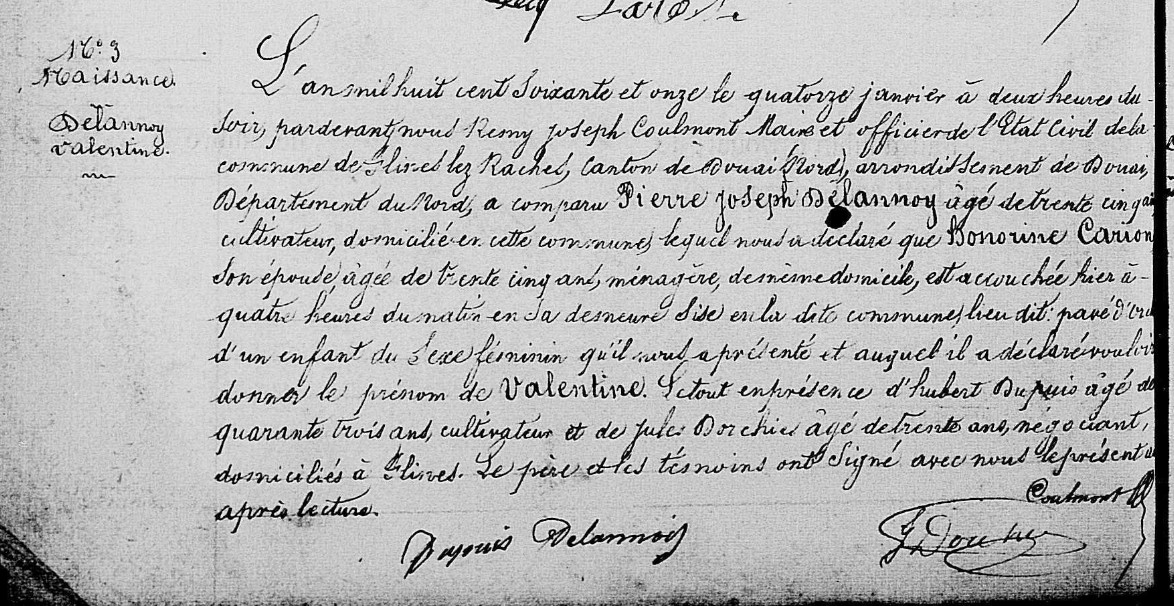 N° 3
Naissance
Delannoy
Valentine.
L'an mil huit cent soixante et onze le quatorze janvier à deux heures du
soir, pardevant nous Remy Joseph Coulmont Maire et officier de l'Etat Civil de la
commune de Flines lez Raches, Canton de Douai (Nord), arrondissement de Douai,
Département du Nord, a comparu Pierre Joseph Delannoy âgé de trente cinq ans
cultivateur, domicilié en cette commune, lequel nous a déclaré que Honorine Carion
son épouse, âgée de trente cinq ans, ménagère, de même domicile, est accouchée hier à
quatre heures du matin en sa demeure sise en la dite commune, lieu dit: pavé
d'un enfant du sexe féminin qu'il nous a présenté et auquel il a déclaré vouloir
donner le prénom de Valentine. Le tout en présence d'hubert Dupuis âgé de
quarante trois ans, cultivateur et de Jules Dorchies âgé de trente ans, négociant,
domiciliés à Flines. Le père et les témoins ont signé avec nous le présent
après lecture.
Coulmont
Dupuis Delannoy